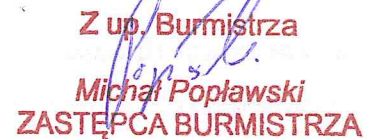 Z up. Burmistrza
Michał Popławski
ZASTĘPCA BURMISTRZA